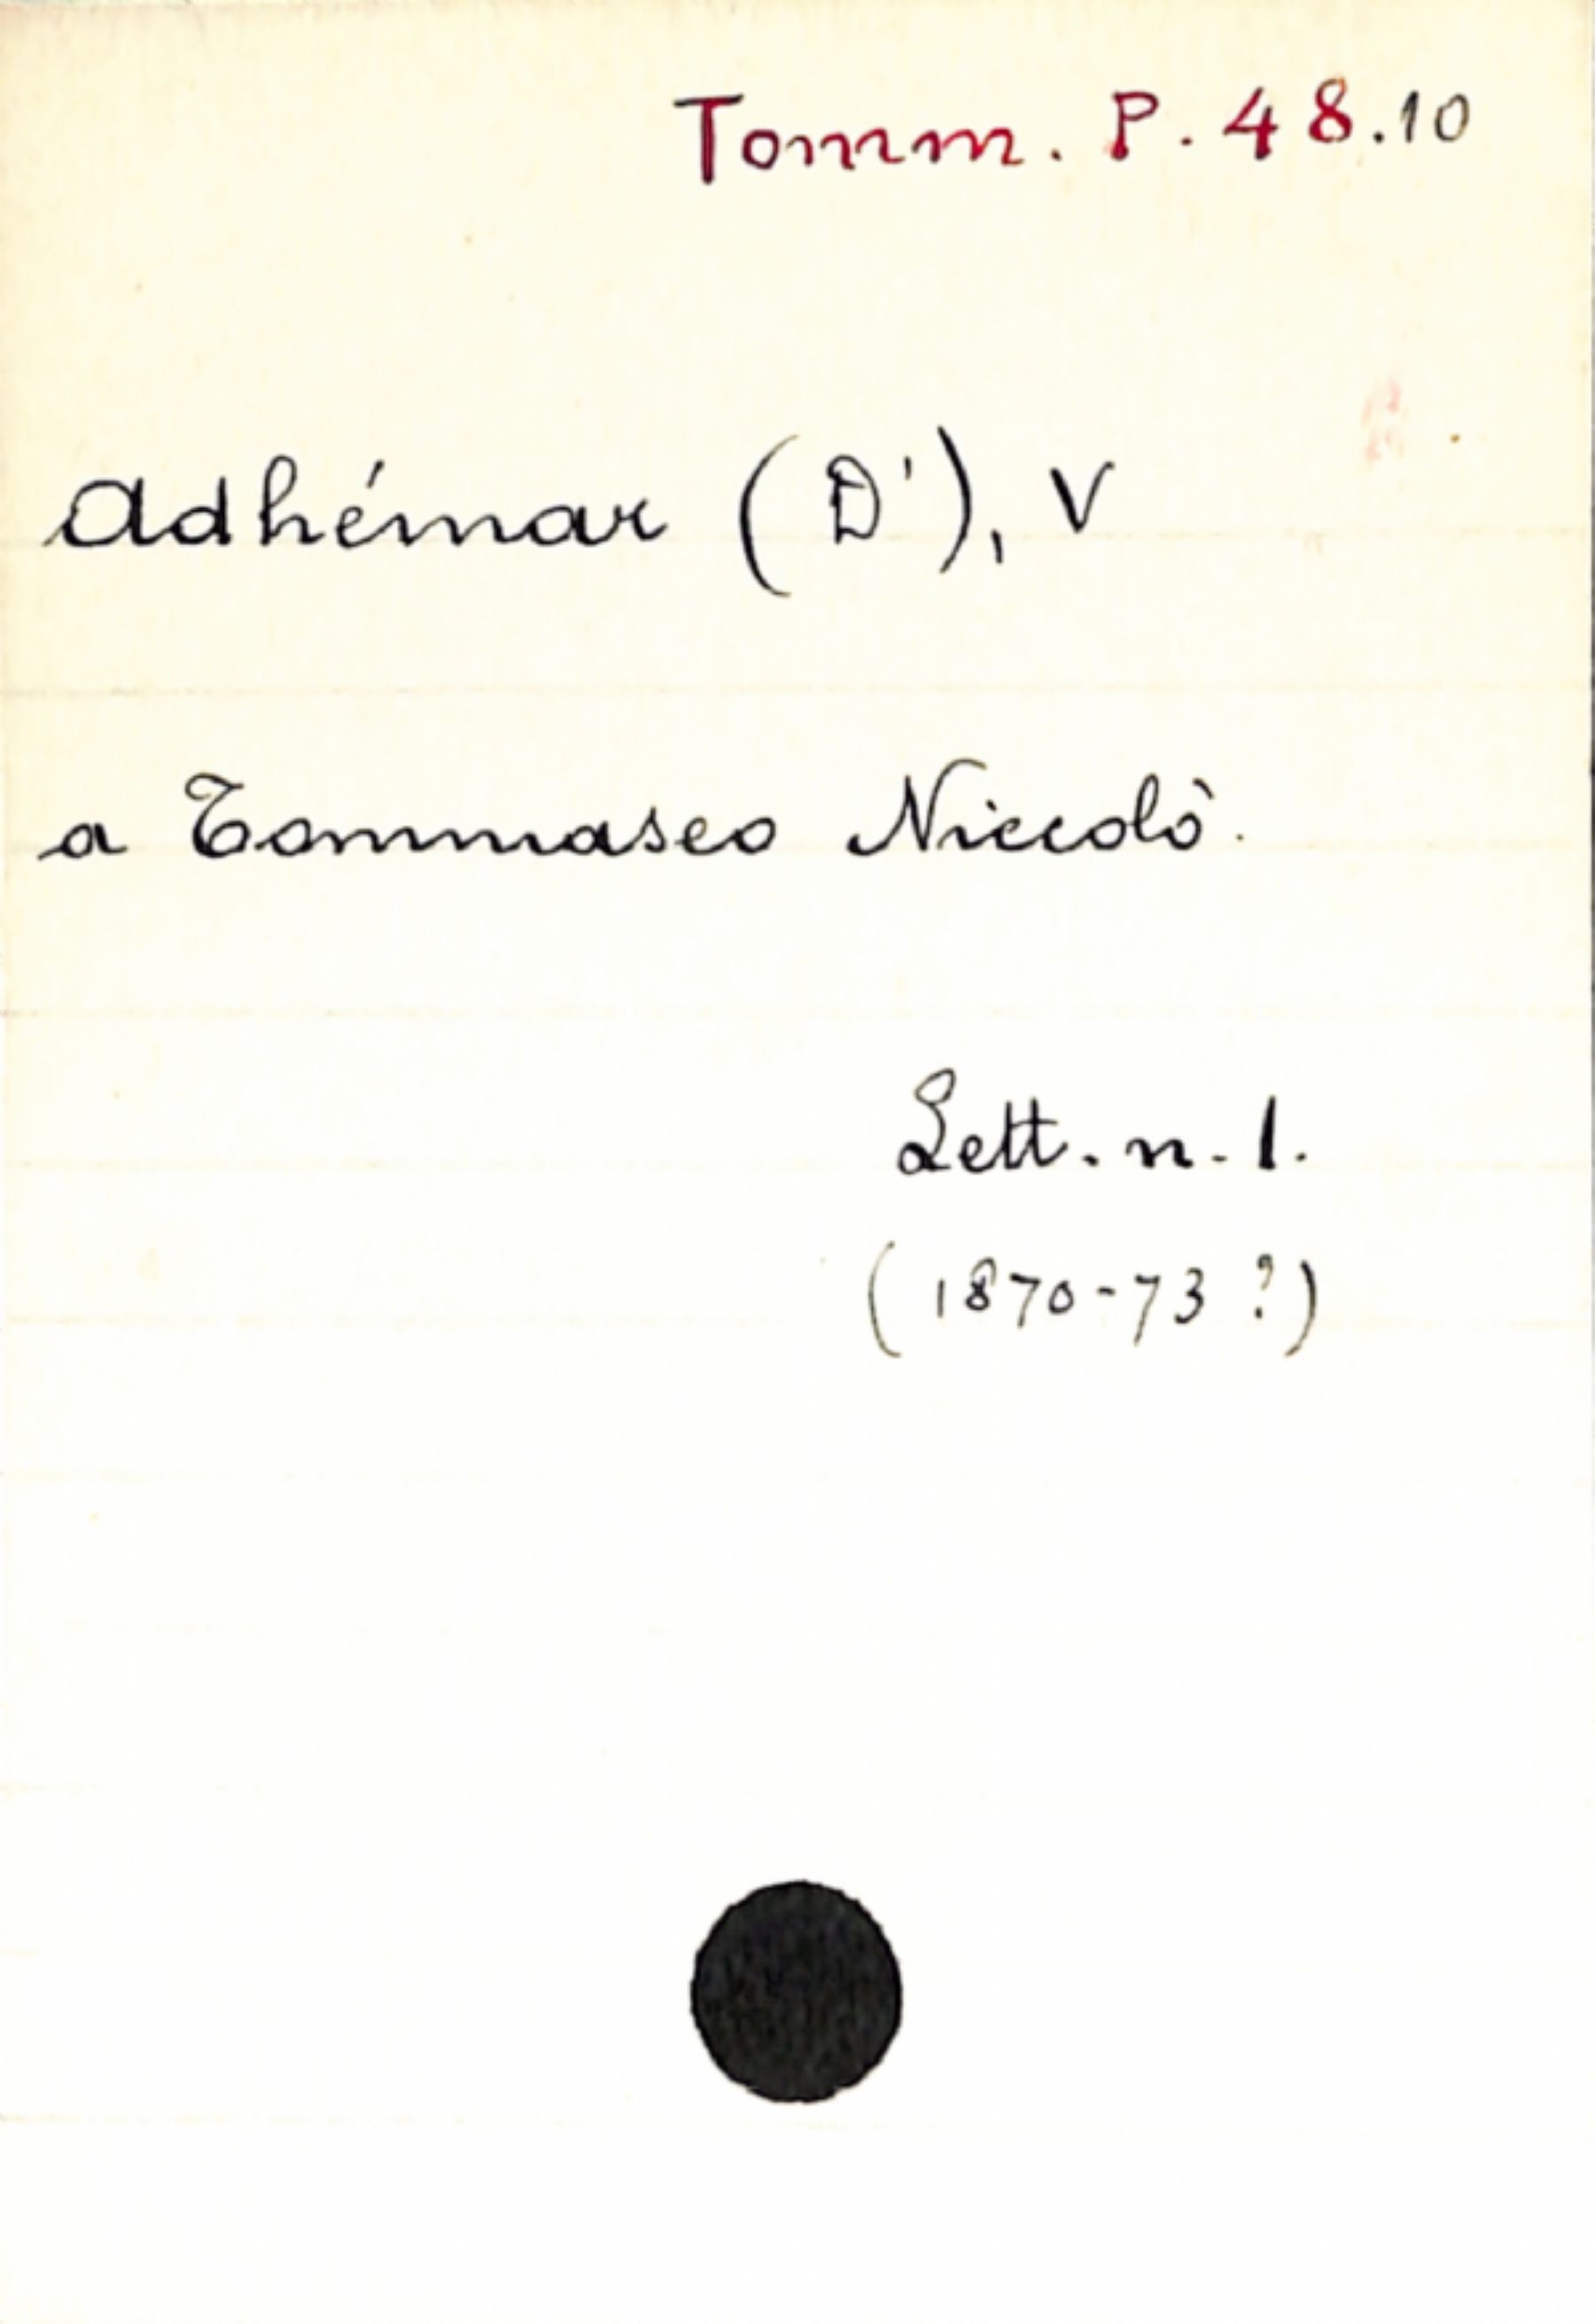 Tomm. P. 48.10
Adhémar (D'), V
a Tommaseo Niccolò.
Lett. n. 1.
(1870-73 ?)